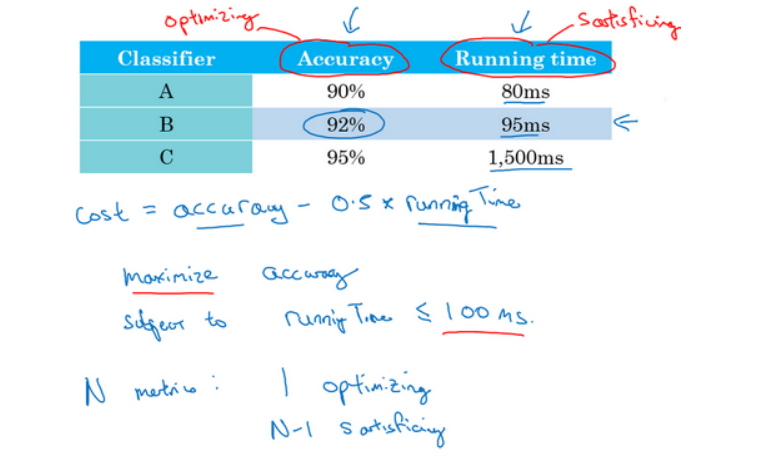 optimizing
Satisficing
Classifier Accuracy Running time
A 90% 80ms
B 92% 95ms
C 95% 1,500ms
Cost = accuracy - 0.5 x running Time
maximize accuracy
subject to running Time ≤ 100 ms.
N metrics: 1 optimizing
N-1 satisficing